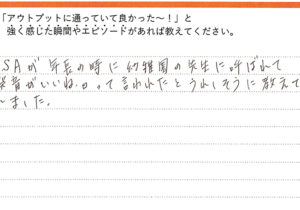 「アウトプットに通っていて良かった〜！」と
強く感じた瞬間やエピソードがあれば教えてください。
SAが年長の時に幼稚園の先生に呼ばれて
発音がいいね。って言われたとうれしそうに教えて
ました。